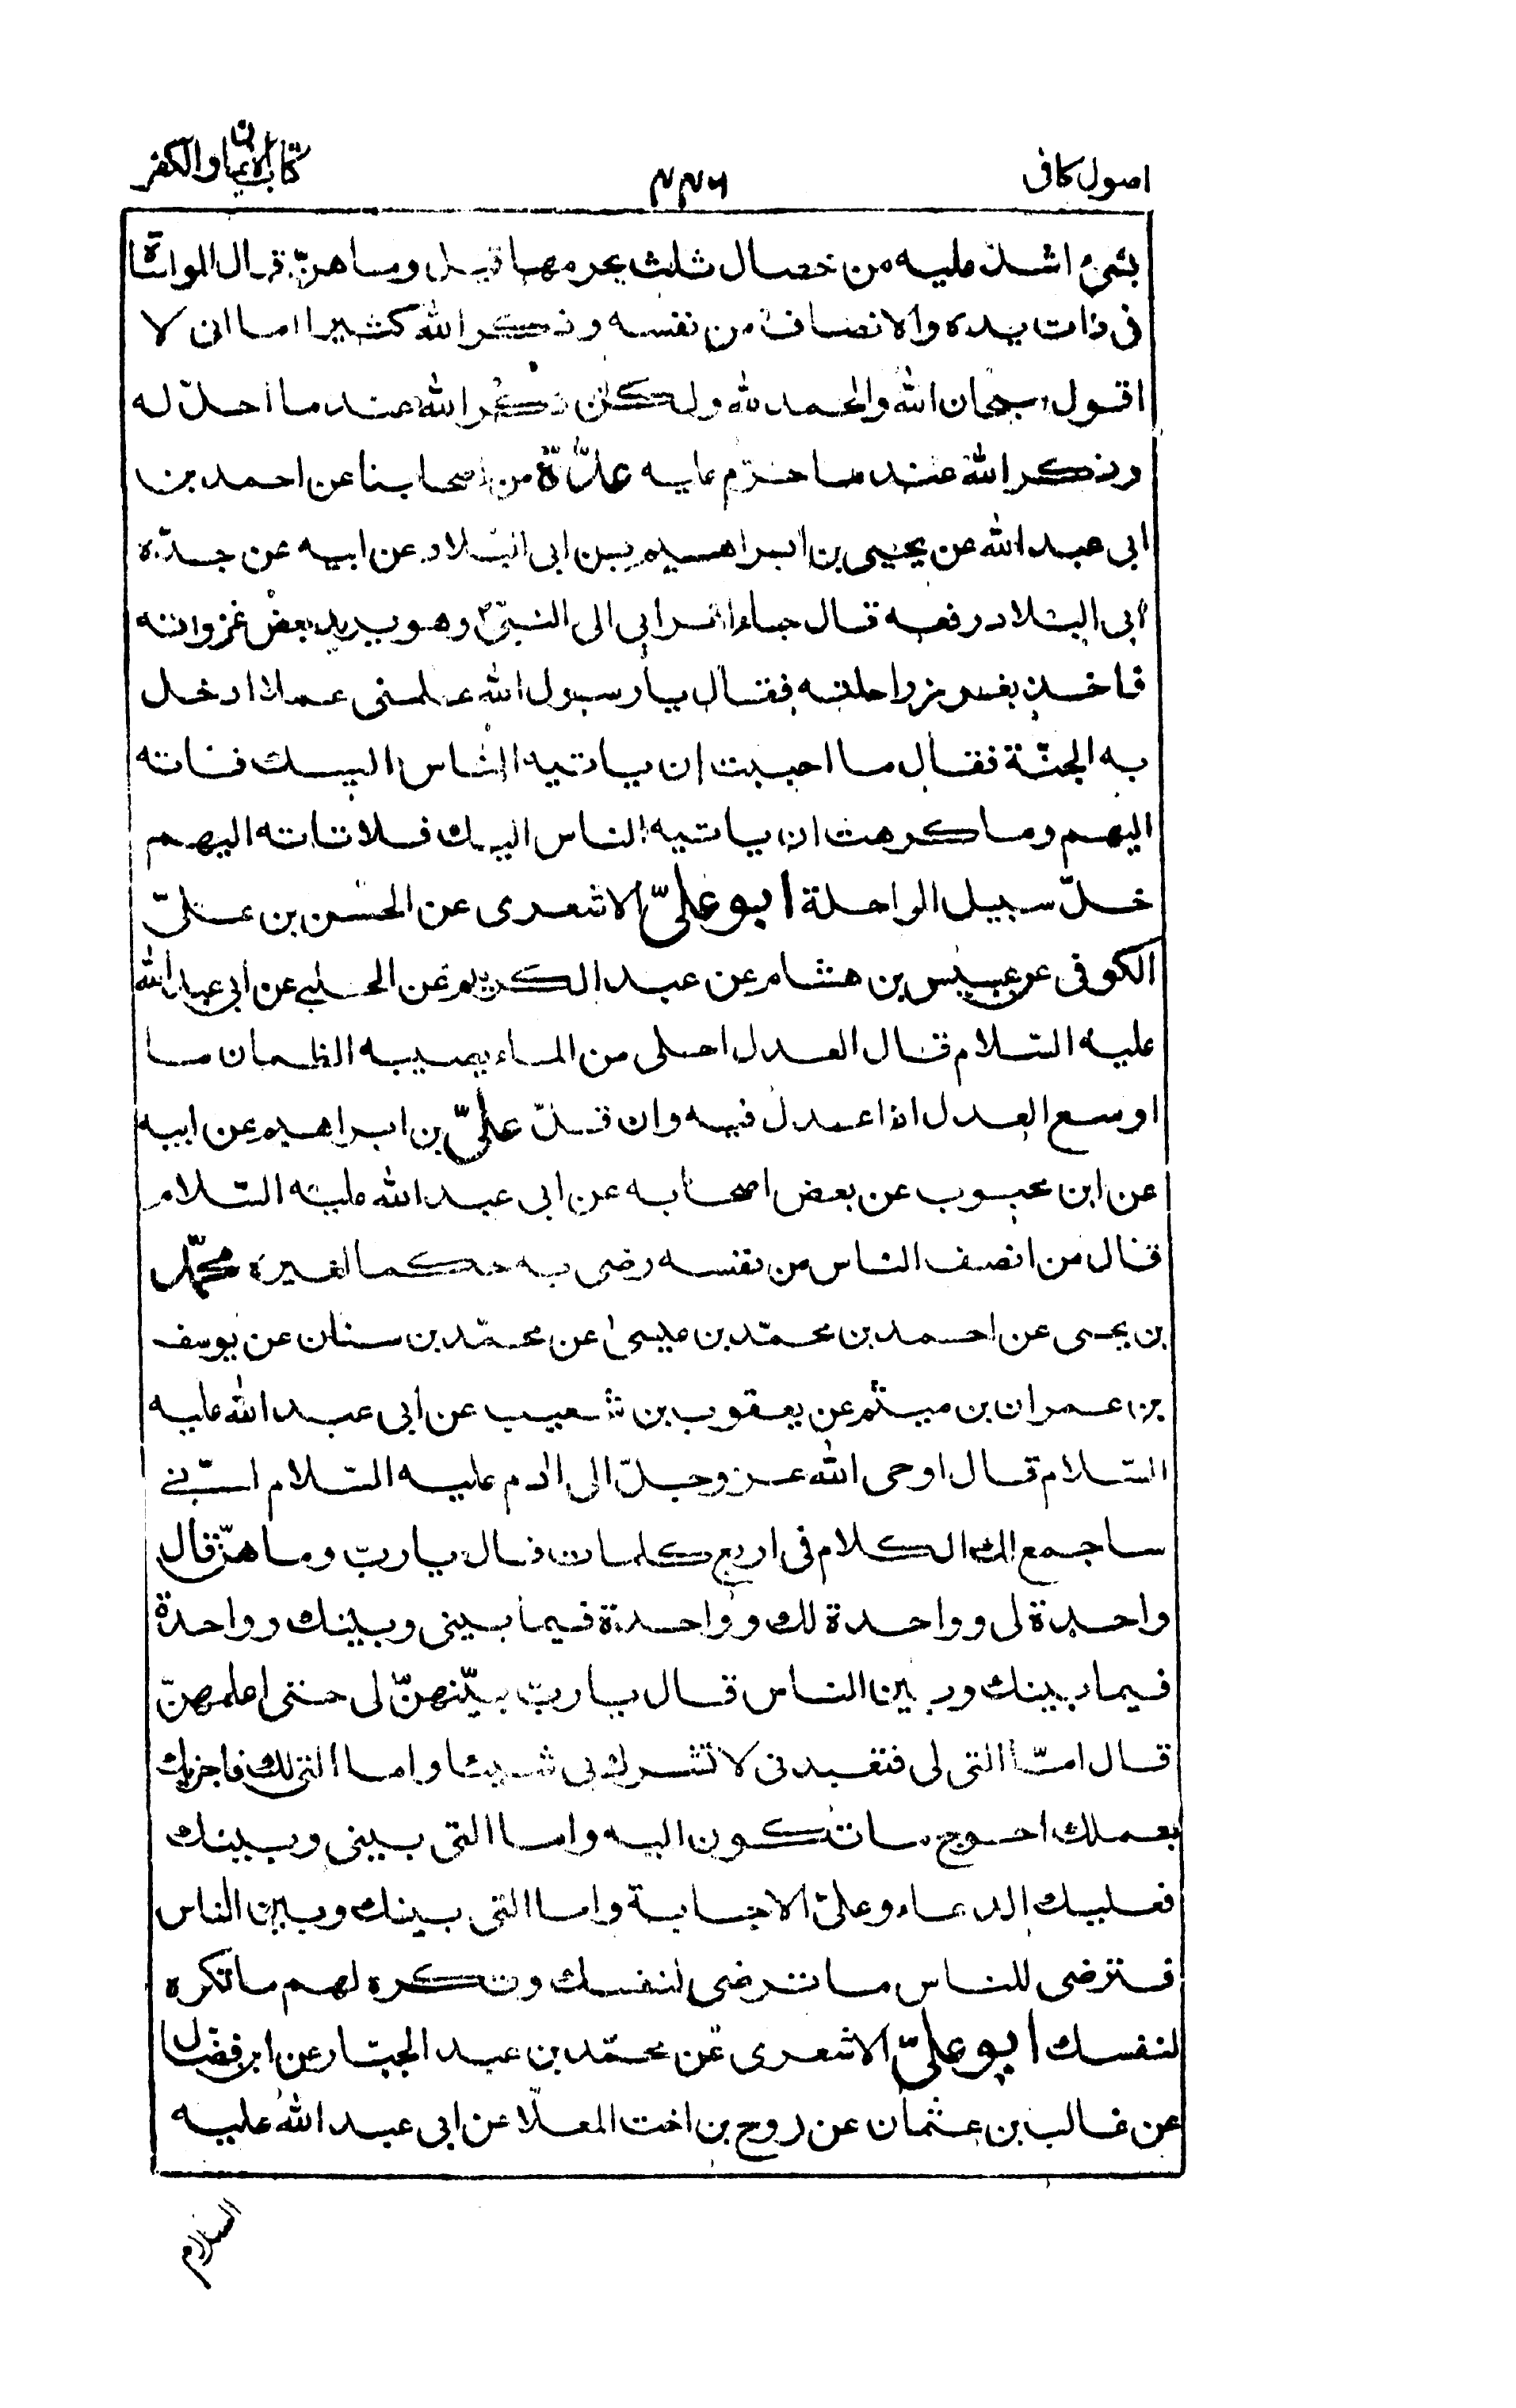 اصول كافى
كتاب الايمان والكفر
بشئ اشدّ عليه من خصال ثلث يحرمها قيل وما هنّ قال المواساة
فى ذات يده والانصاف من نفسه وذكر الله كثيرا اما انى لا
اقول سبحان الله والحمد لله ولكن ذكر الله عند ما احلّ له
وذكر الله عند ما حرّم عليه عدّة من اصحابنا عن احمد بن
ابى عبد الله عن يحيى بن ابراهيم بن ابى البلاد عن ابيه عن جدّه
ابى البلاد رفعه قال جاء اعرابى الى النبىّ ص وهو يريد بعض غزواته
فاخذ بغرز راحلته فقال يا رسول الله علمنى عملا ادخل
به الجنّة فقال ما احببت ان ياتيه الناس اليك فاته
اليهم وما كرهت ان ياتيه الناس اليك فلا تاته اليهم
خلّ سبيل الراحلة ابو علىّ الاشعرى عن الحسن بن علىّ
الكوفى عن عبيس بن هشام عن عبد الكريم عن الحلبى عن ابى عبد الله
عليه السّلام قال العدل احلى من الماء يصيبه الظمان ما
اوسع العدل اذا عدل فيه وان قلّ علىّ بن ابراهيم عن ابيه
عن ابن محبوب عن بعض اصحابه عن ابى عبد الله عليه السّلام
قال من انصف الناس من نفسه رضى به حكما لغيره محمّد
بن يحيى عن احمد بن محمّد بن عيسى عن محمّد بن سنان عن يوسف
بن عمران بن ميثم عن يعقوب بن شعيب عن ابى عبد الله عليه
السّلام قال اوحى الله عز وجلّ الى ادم عليه السّلام انّى
ساجمع لك الكلام فى اربع كلمات قال يا ربّ وما هنّ قال
واحدة لى وواحدة لك وواحدة فيما بينى وبينك وواحدة
فيما بينك وبين الناس قال يا ربّ بيّنهنّ لى حتى اعلمهنّ
قال امّا التى لى فتعبدنى لا تشرك بى شيئا واما التى لك فاجزيك
بعملك احوج ما تكون اليه واما التى بينى وبينك
فعليك الدعاء وعلىّ الاجابة واما التى بينك وبين الناس
فترضى للناس ما ترضى لنفسك وتكره لهم ما تكره
لنفسك ابو علىّ الاشعرى عن محمّد بن عبد الجبّار عن ابن فضّال
عن غالب بن عثمان عن روح بن اخت المعلّا عن ابى عبد الله عليه
السلام